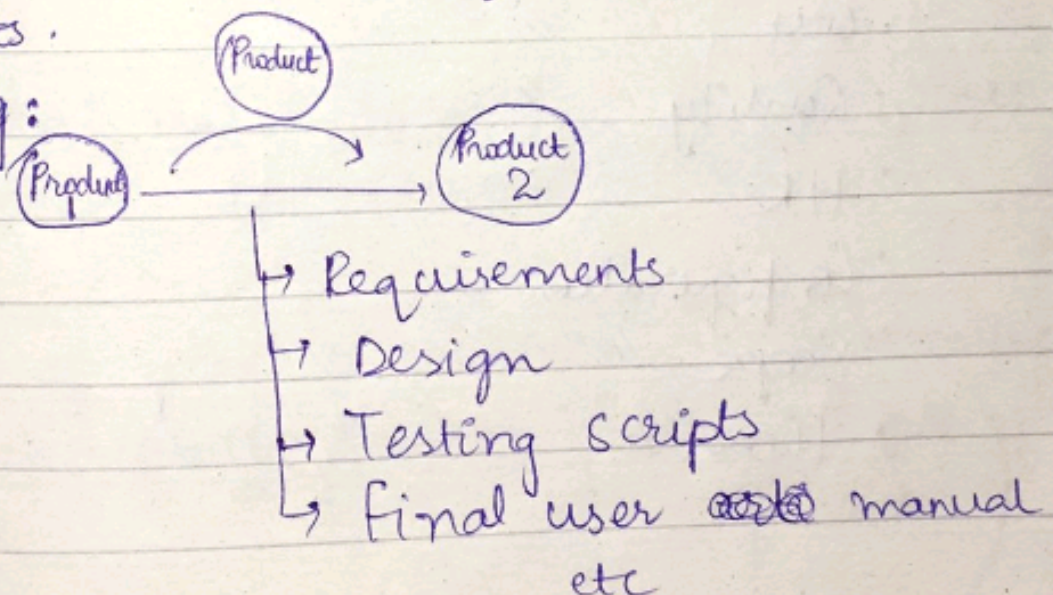 Product
Product
1
Product
2
Requirements
Design
Testing scripts
final user manual
etc